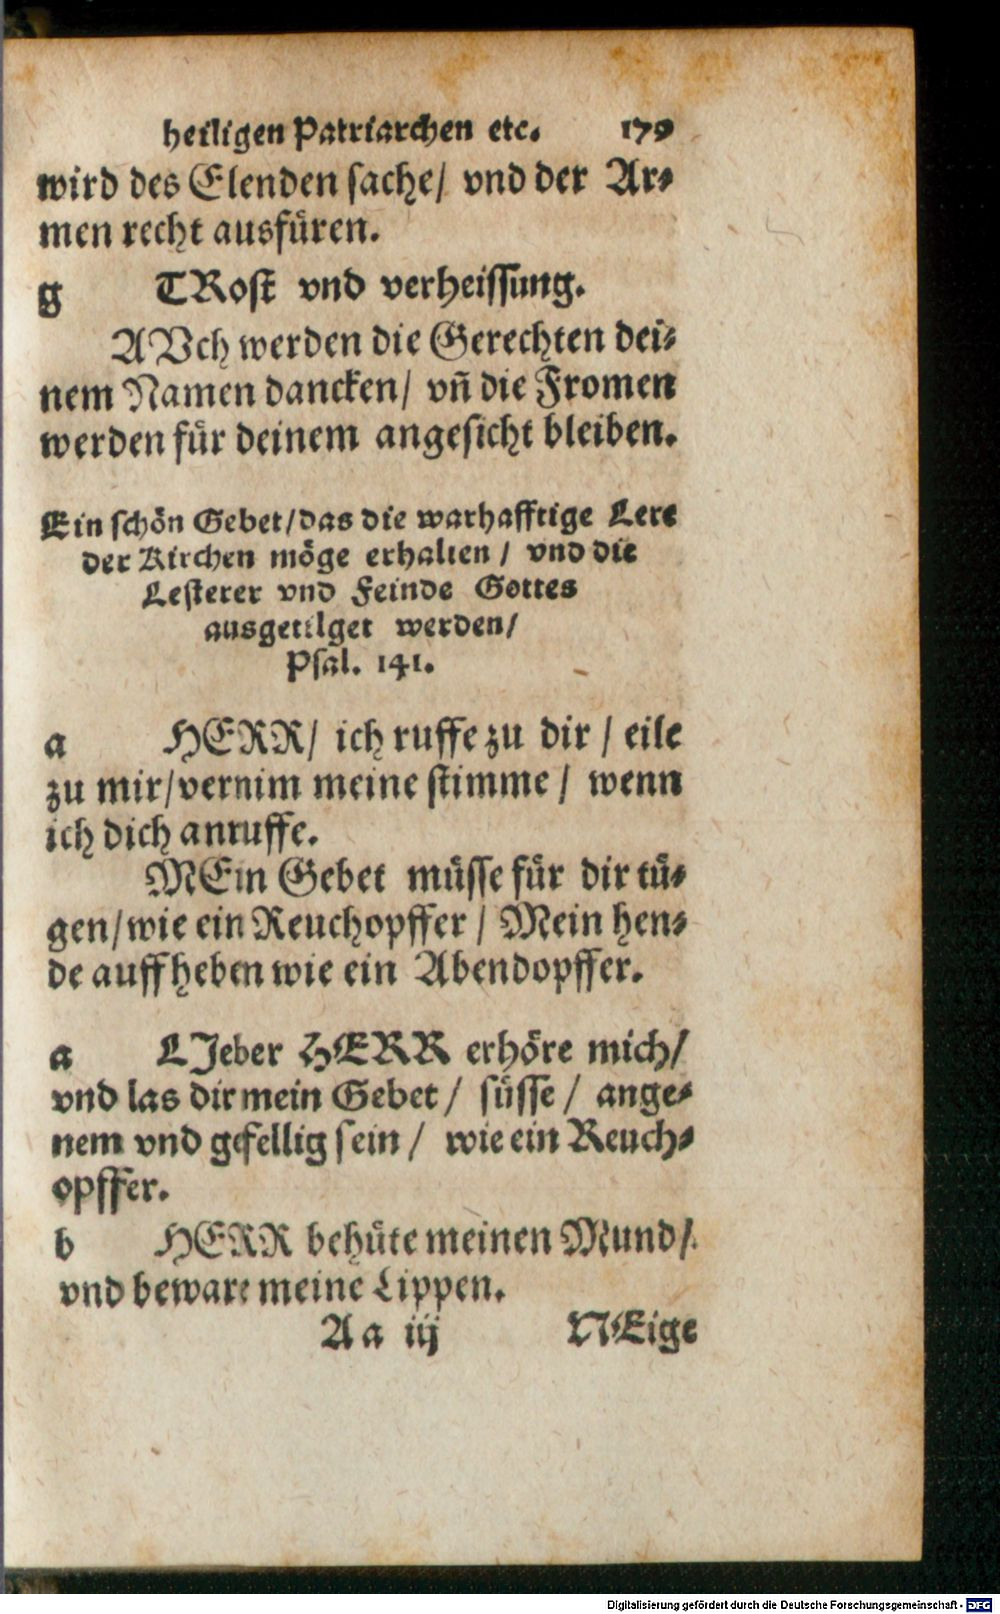 heiligen Patriarchen etc. 179
wird des Elenden sache/ vnd der Ar-
men recht ausfüren.
g TRost vnd verheissung.
AVch werden die Gerechten dei-
nem Namen dancken/ vñ die Fromen
werden für deinem angesicht bleiben.
Ein schön Gebet/das die warhafftige Lere
der Kirchen möge erhalten / vnd die
Lesterer vnd Feinde Gottes
ausgetilget werden/
Psal. 141.
a HERR/ ich ruffe zu dir / eile
zu mir/vernim meine stimme / wenn
ich dich anruffe.
MEin Gebet müsse für dir tü-
gen/wie ein Reuchopffer / Mein hen-
de auffheben wie ein Abendopffer.
a LJeber HERR erhöre mich/
vnd las dir mein Gebet / süsse / ange-
nem vnd gefellig sein / wie ein Reuch-
opffer.
b HERR behüte meinen Mund/
vnd beware meine Lippen.
Aa iij NEige
Digitalisierung gefördert durch die Deutsche Forschungsgemeinschaft - DFG